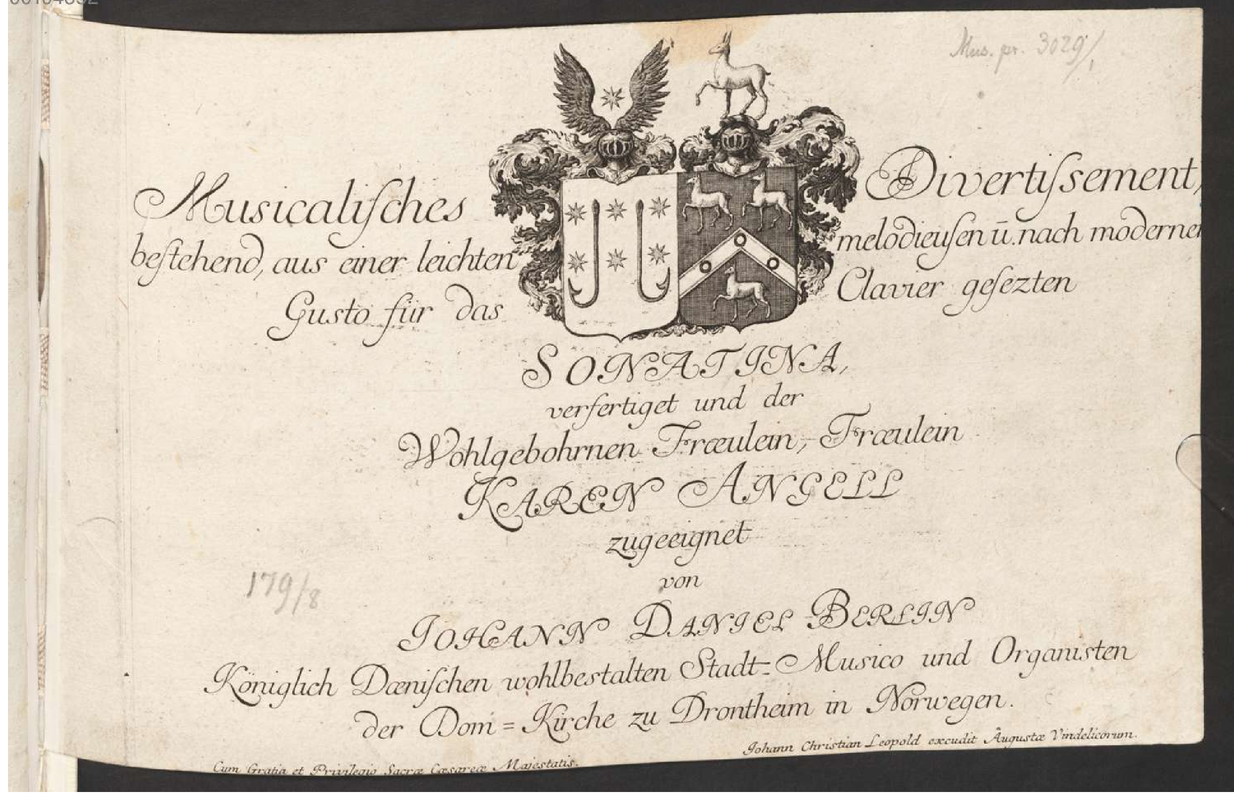 Mus. pr. 3029/1
Musicaliſches Divertiſsement,
beſtehend, aus einer leichten melodieuſen ū. nach modernen
Gusto für das Clavier geſezten
SONATINA,
verfertiget und der
Wohlgebohrnen Fræulein, Fræulein
KAREN ANGELL
zugeeignet
von
179/8
IOHANN DANIEL BERLIN
Königlich Dæniſchen wohlbestalten Stadt-Musico und Organisten
der Dom=Kirche zu Drontheim in Norwegen.
Cum Gratia et Privilegio Sacræ Cæsareæ Majestatis.
Johann Christian Leopold excudit Augustæ Vindelicorum.